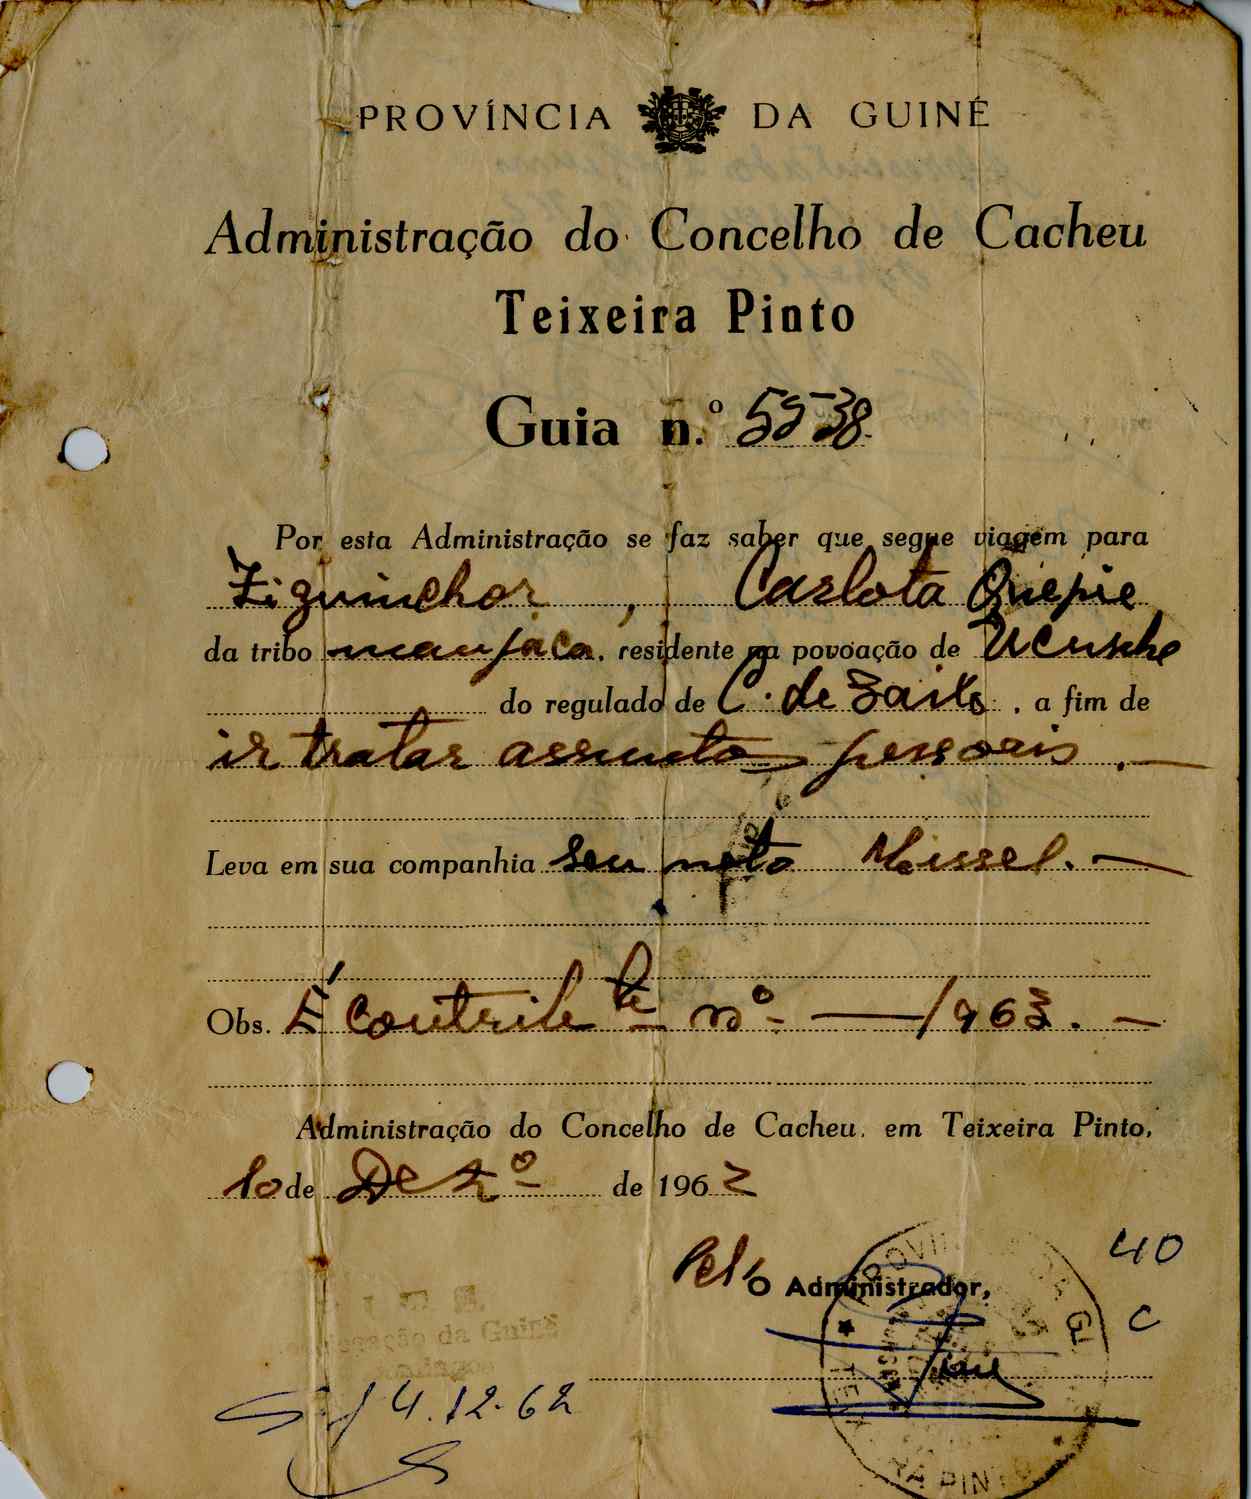 PROVÍNCIA DA GUINÉ
Administração do Concelho de Cacheu
Teixeira Pinto
Guia n.º 5538
Por esta Administração se faz saber que segue viagem para
Ziguinchor, Carlota Quepie
da tribo manjaca, residente na povoação de
do regulado de C. de Baixo, a fim de
ir tratar assuntos pessoais.—
Leva em sua companhia seu neto Missel.—
Obs. É contribte nº — /963.—
Administração do Concelho de Cacheu, em Teixeira Pinto,
10 de Dezº de 1962
Pel'O Administrador,
40
C
Guiné
14.12.62